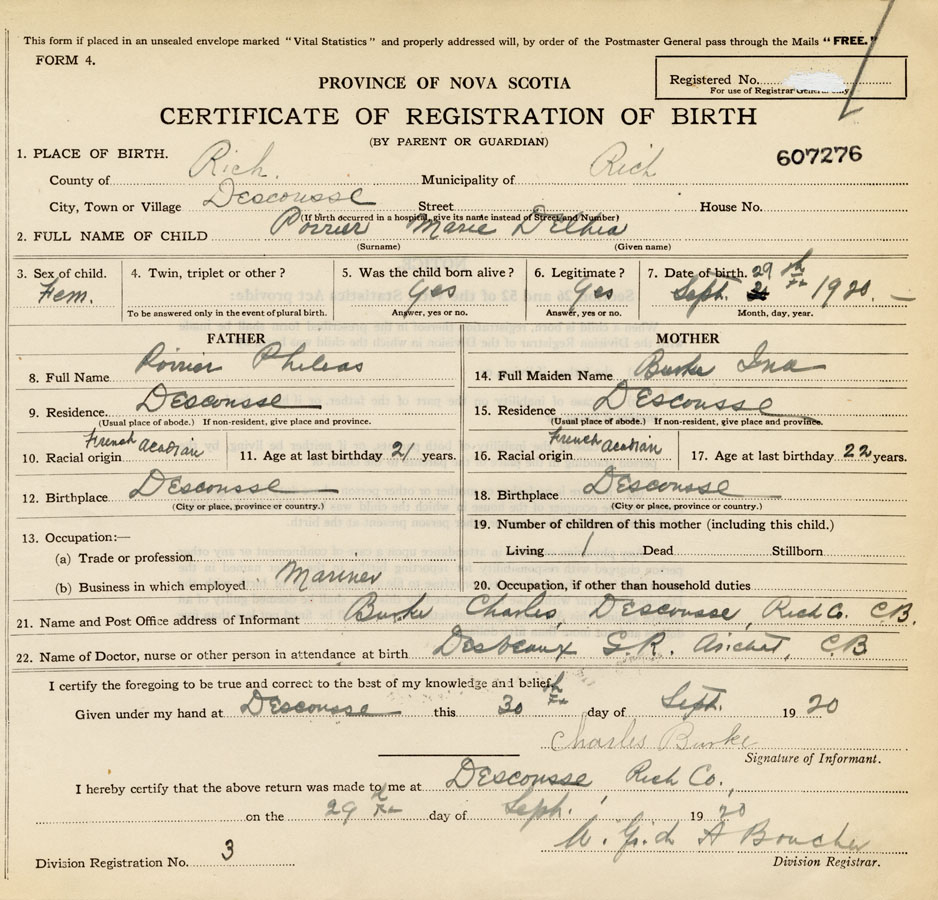 This form if placed in an unsealed envelope marked "Vital Statistics" and properly addressed will, by order of the Postmaster General pass through the Mails "FREE."
FORM 4.
PROVINCE OF NOVA SCOTIA
Registered No.
For use of Registrar General only
CERTIFICATE OF REGISTRATION OF BIRTH
(BY PARENT OR GUARDIAN)
607276
1. PLACE OF BIRTH.
County of Rich. Municipality of Rich
City, Town or Village Descousse Street House No.
(If birth occurred in a hospital, give its name instead of Street and Number)
2. FULL NAME OF CHILD Poirier Marie Delhia
(Surname) (Given name)
3. Sex of child. Fem.
4. Twin, triplet or other?
To be answered only in the event of plural birth.
5. Was the child born alive? Yes
Answer, yes or no.
6. Legitimate? Yes
Answer, yes or no.
7. Date of birth. 29th
Sept. 1920.
Month, day, year.
FATHER
8. Full Name Poirier Phileas
9. Residence. Descousse
(Usual place of abode.) If non-resident, give place and province.
10. Racial origin French Acadian 11. Age at last birthday 21 years.
12. Birthplace Descousse
(City or place, province or country.)
13. Occupation:—
(a) Trade or profession
(b) Business in which employed Mariner
MOTHER
14. Full Maiden Name Burke Ina
15. Residence Descousse
(Usual place of abode.) If non-resident, give place and province.
16. Racial origin French Acadian 17. Age at last birthday 22 years.
18. Birthplace Descousse
(City or place, province or country.)
19. Number of children of this mother (including this child.)
Living 1 Dead Stillborn
20. Occupation, if other than household duties
21. Name and Post Office address of Informant Burke Charles, Descousse, Rich Co. C.B.
22. Name of Doctor, nurse or other person in attendance at birth Desbeaux G.R. Arichat, C B
I certify the foregoing to be true and correct to the best of my knowledge and belief.
Given under my hand at Descousse this 30th day of Sept. 1920
Charles Burke
Signature of Informant.
I hereby certify that the above return was made to me at Descousse Rich Co.,
on the 29th day of Sept. 1920
A Boucher
Division Registrar.
Division Registration No. 3